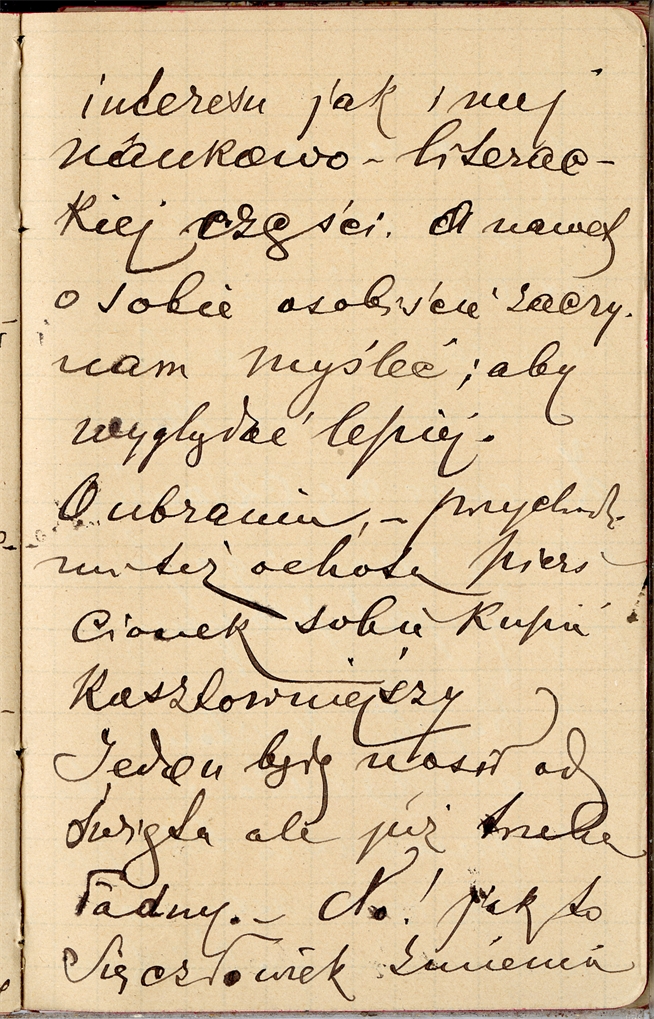 interesu jak i mej
naukowo - literac-
kiej części. A nawet
o sobie osobiście zaczy.
nam myśleć; aby
wyglądać lepiej.
O ubraniu, - przychodzi
mi też ochota pierś
cionek sobie kupić
kosztowniejszy
Jeden będę nosił od
święta ale już trochę
ładny. - No! jak to
się człowiek zmienia